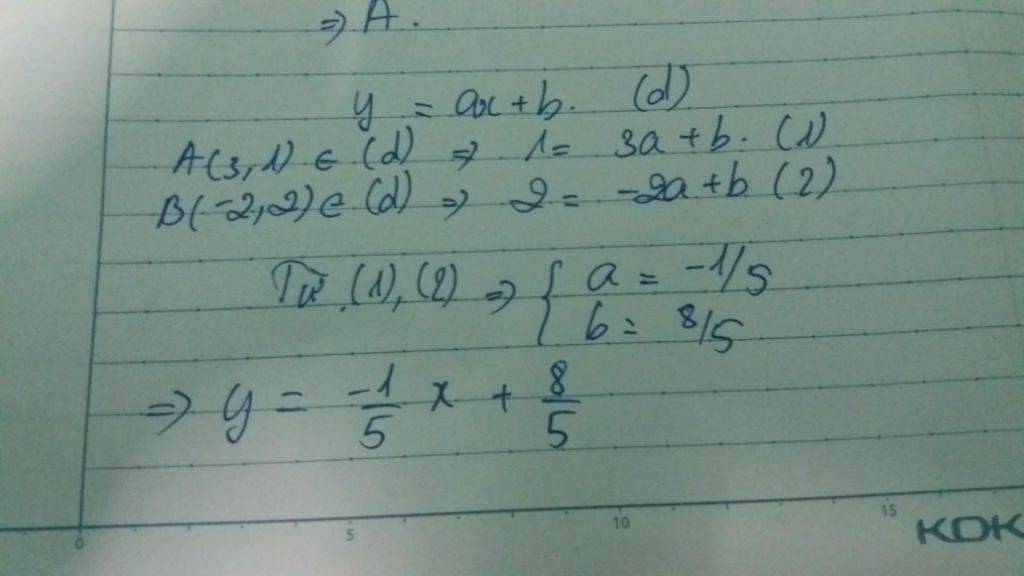 => A.
y = ax + b. (d)
A(3,1) ∈ (d) => 1 = 3a + b. (1)
B(-2,2) ∈ (d) => 2 = -2a + b (2)
Từ (1), (2) => { a = -1/5
b = 8/5
=> y = -1/5 x + 8/5
0 5 10 15 KOK